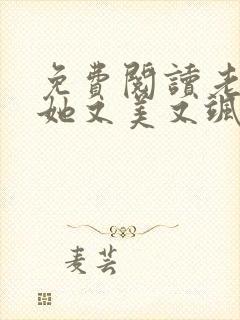 免費閱讀老
她又美又颯
麦芸